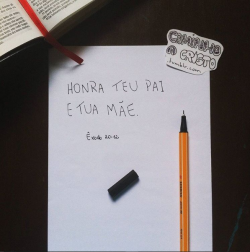 HONRA TEU PAI
E TUA MÃE.
Êxodo 20:12
CAMINHO
A CRISTO
tumblr.com